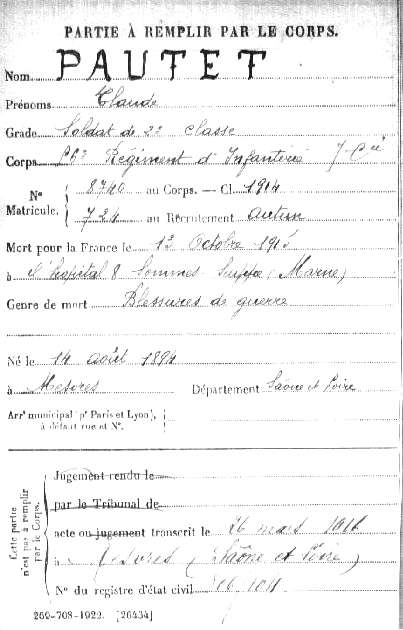 PARTIE À REMPLIR PAR LE CORPS.
Nom PAUTET
Prénoms Claude
Grade Soldat de 2e classe
Corps Régiment d'Infanterie 7e Cie
No Matricule. 8740 au Corps. — Cl. 1914
724 au Recrutement Autun
Mort pour la France le Octobre 1915
à l'hopital 8 Sommes Suippe (Marne)
Genre de mort Blessures de guerre
Né le 14 août 1894
à Mesvres Département Saône et Loire
Arrt municipal (pr Paris et Lyon),
à défaut rue et No.
Cette partie n'est pas à remplir par le Corps.
Jugement rendu le
par le Tribunal de
acte ou jugement transcrit le 26 mars 1916
à Mesvres (Saône et Loire)
No du registre d'état civil
269-708-1922. [26434]